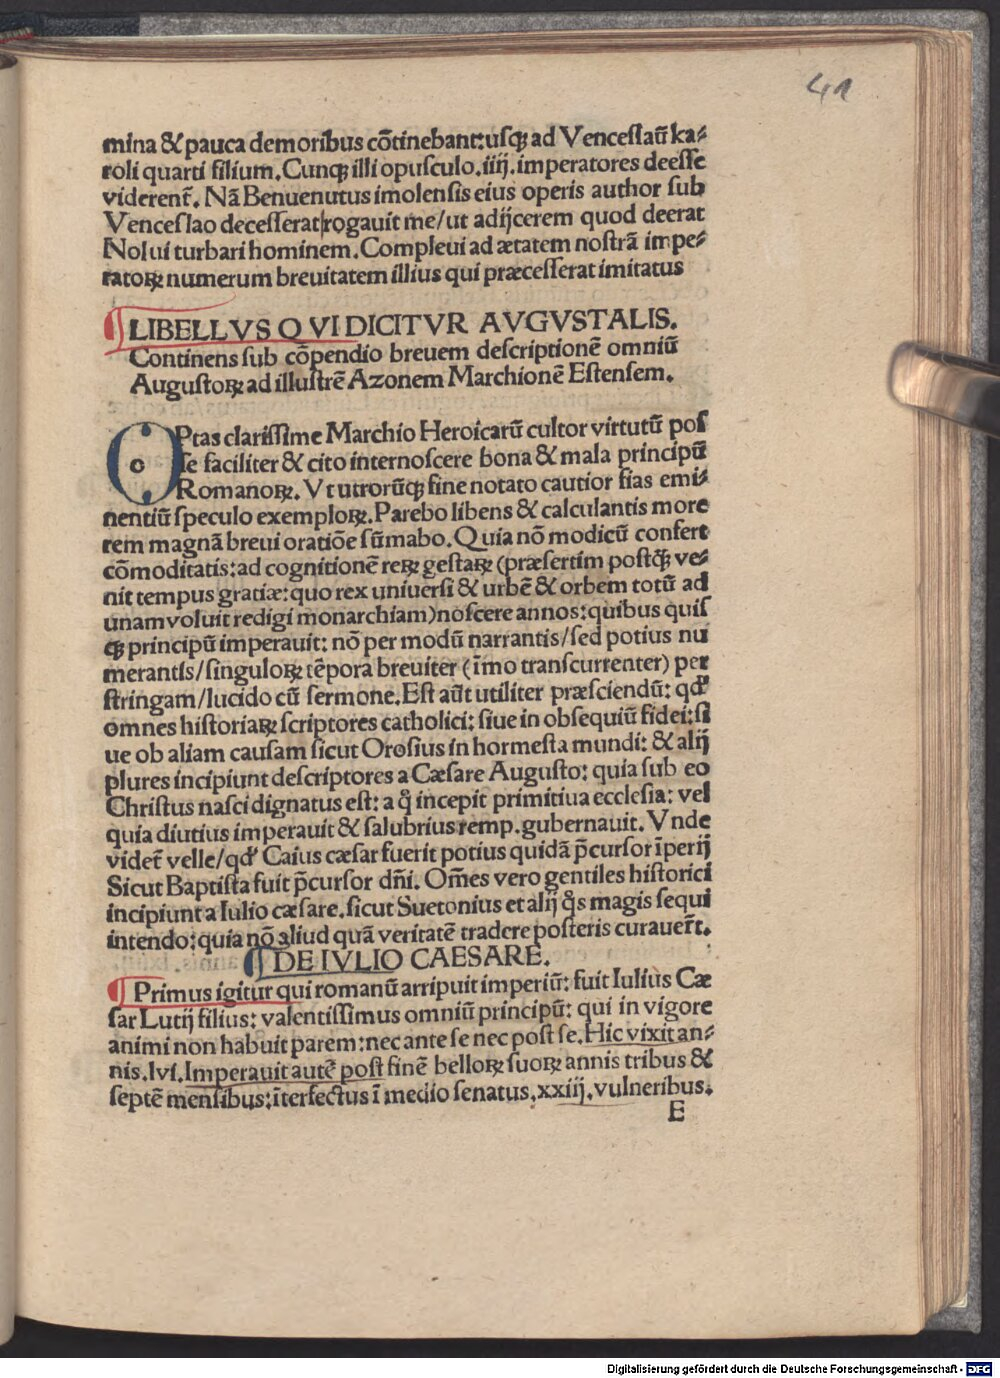 41
mina & pauca de moribus cõtinebant: usqꝫ ad Venceslaũ ka⸗
roli quarti filium. Cunqꝫ illi opusculo .iiij. imperatores deesse
viderent᷑. Nã Benuenutus imolensis eius operis author sub
Venceslao decesserat rogauit me/ut adijcerem quod deerat
Nolui turbari hominem. Compleui ad ætatem nostrã impe⸗
ratoꝝ numerum breuitatem illius qui præcesserat imitatus
LIBELLVS QVI DICITVR AVGVSTALIS.
Continens sub cõpendio breuem descriptionẽ omniũ
Augustoꝝ ad illustrẽ Azonem Marchionẽ Estensem.
OPtas clarissime Marchio Heroicarũ cultor virtutũ pos
se faciliter & cito internoscere bona & mala principũ
Romanoꝝ. Vt utrorũqꝫ fine notato cautior fias emi⸗
nentiũ speculo exemploꝝ. Parebo libens & calculantis more
rem magnã breui oratiõe sũmabo. Quia nõ modicũ confert
cõmoditatis: ad cognitionẽ reꝝ gestaꝝ (præsertim postqꝫ̃ ve⸗
nit tempus gratiæ: quo rex uniuersi & urbẽ & orbem totũ ad
unam voluit redigi monarchiam) noscere annos: quibus quis
qꝫ principũ imperauit: nõ per modũ narrantis/sed potius nu
merantis/singuloꝝ tẽpora breuiter (ĩmo transcurrenter) per
stringam/lucido cũ sermone. Est aũt utiliter præsciendũ: qđ
omnes historiaꝝ scriptores catholici: siue in obsequiũ fidei: si
ue ob aliam causam sicut Orosius in hormesta mundi: & alij
plures incipiunt descriptores a Cæsare Augusto: quia sub eo
Christus nasci dignatus est: a qͦ incepit primitiua ecclesia: vel
quia diutius imperauit & salubrius remp. gubernauit. Vnde
videt᷑ velle/qđ Caius cæsar fuerit potius quidã p̃cursor ĩperij
Sicut Baptista fuit p̃cursor dñi. Om̃es vero gentiles historici
incipiunt a Iulio cæsare. sicut Suetonius et alij qͦs magis sequi
intendo: quia nõ aliud quã veritatẽ tradere posteris curauer̃t.
DE IVLIO CAESARE.
Primus igitur qui romanũ arripuit imperiũ: fuit Iulius Cæ
sar Lutij filius: valentissimus omniũ principũ: qui in vigore
animi non habuit parem: nec ante se nec post se. Hic vixit an⸗
nis .lvi. Imperauit autẽ post finẽ belloꝝ suoꝝ annis tribus &
septẽ mensibus: ĩterfectus ĩ medio senatus .xxiij. vulneribus.
E
Digitalisierung gefördert durch die Deutsche Forschungsgemeinschaft - DFG